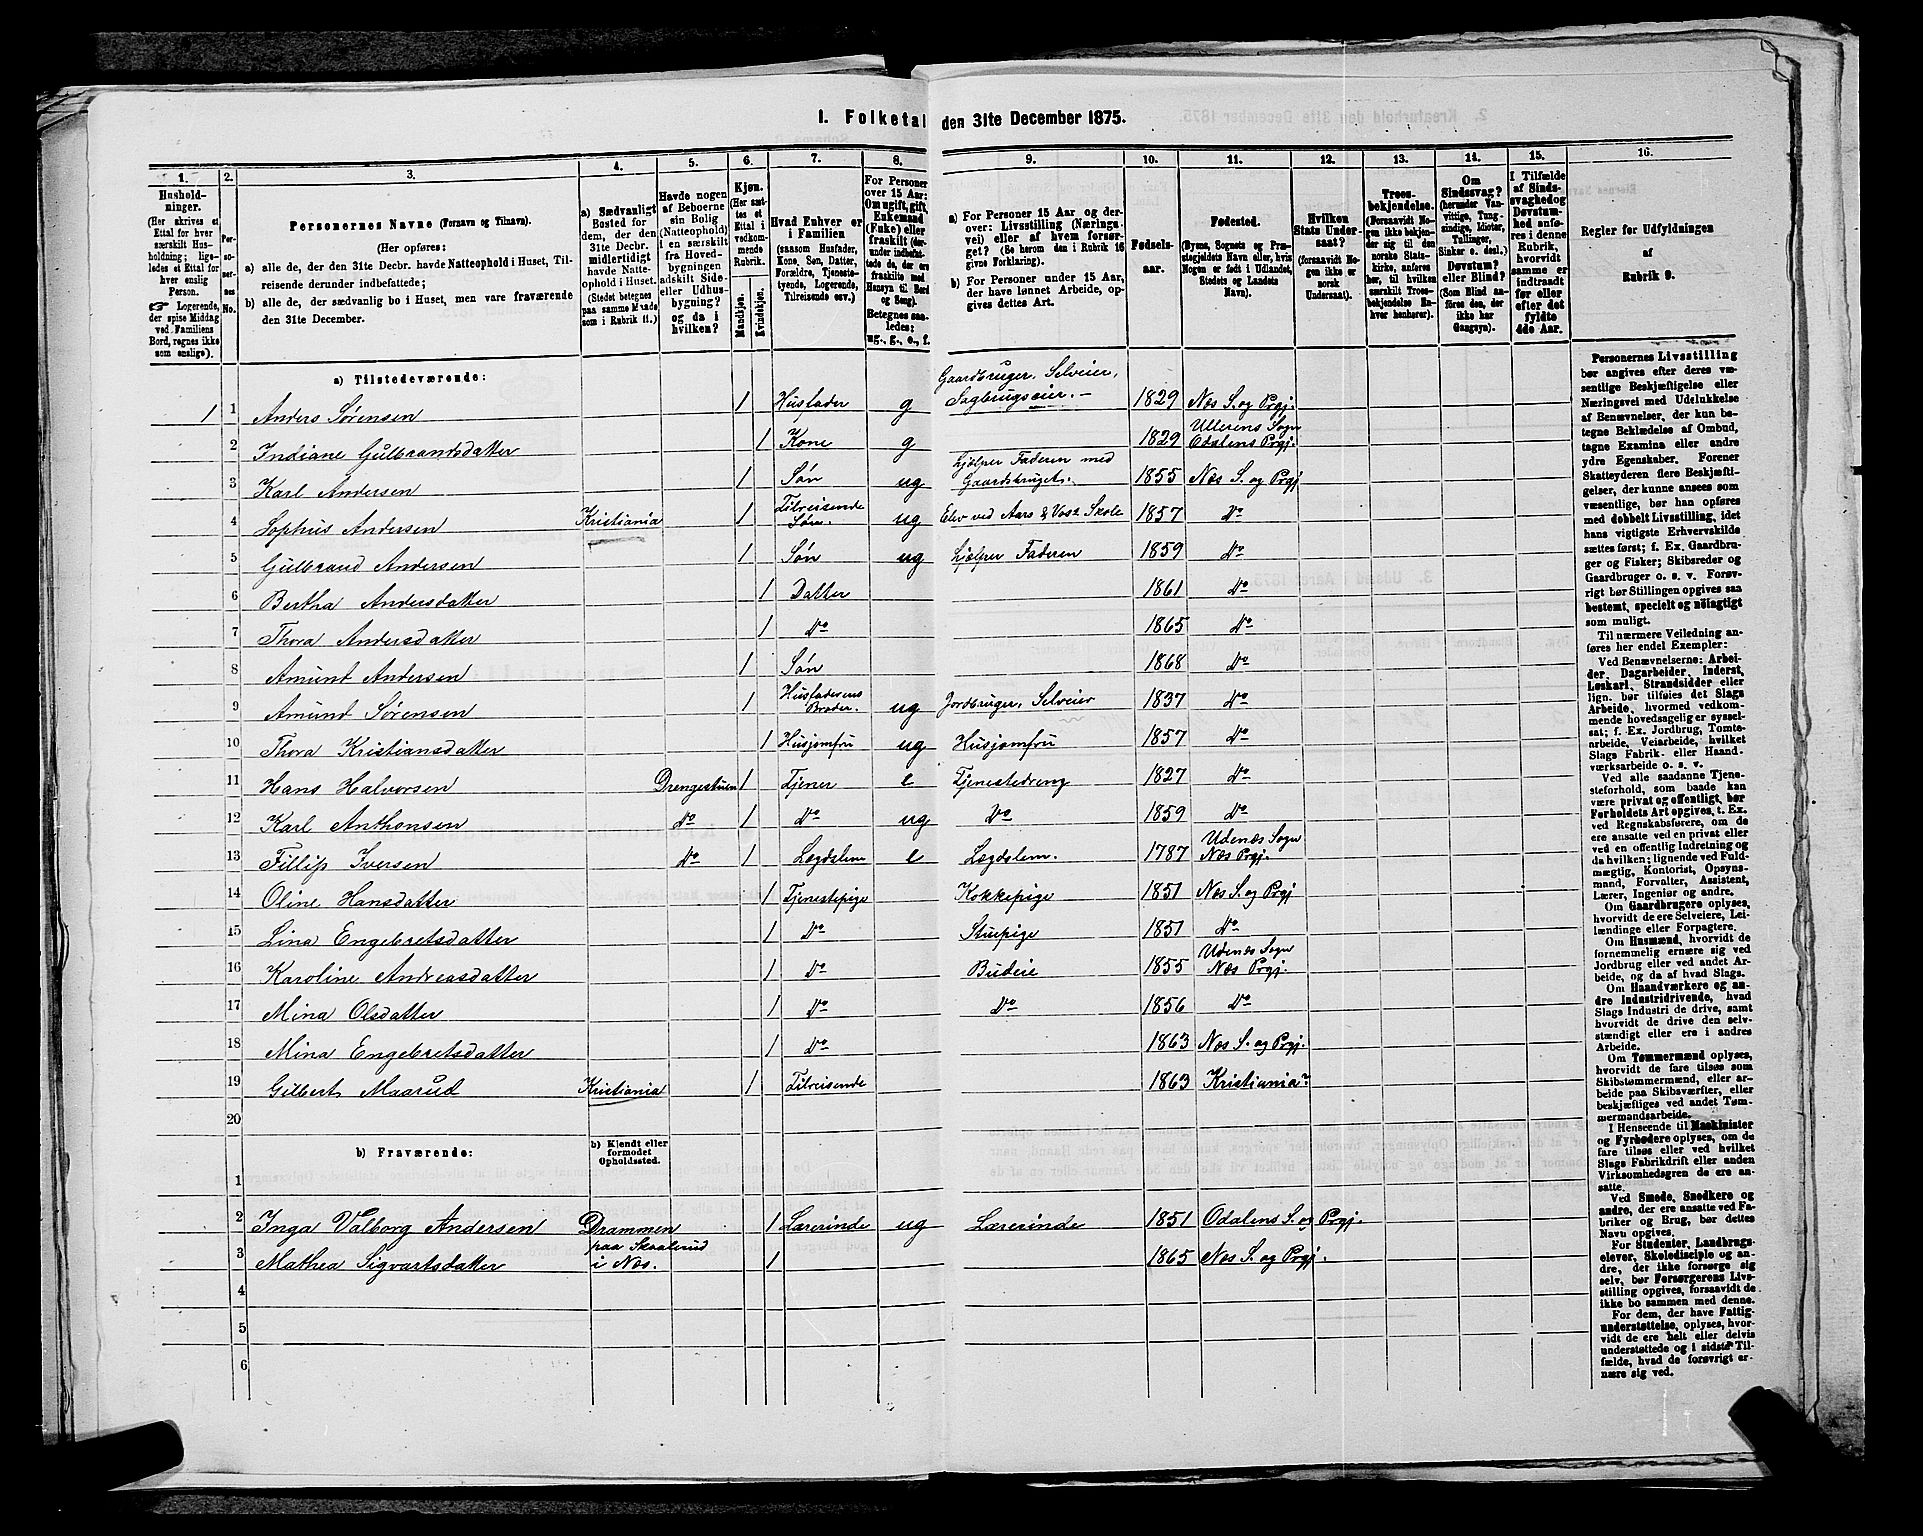 1. Folketal den 31te December 1875.
1. 2. 3. 4. 5. 6. 7. 8. 9. 10. 11. 12. 13. 14. 15. 16.
Hushold-
ninger.
(Her skrives et
Ettal for hver
særskilt Hus-
holdning; lige-
ledes et Ettal for
hver enslig
Person.
Logerende,
der spise Middag
ved Familiens
Bord, regnes ikke
som enslige).
Per-
soner-
nes
No.
Personernes Navne (Fornavn og Tilnavn).
(Her opføres:
a) alle de, der den 31te Decbr. havde Natteophold i Huset, Til-
reisende derunder indbefattede;
b) alle de, der sædvanlig bo i Huset, men vare fraværende
den 31te December.
a) Sædvanligt
Bosted for
dem, der den
31te Decbr.
midlertidigt
havde Natte-
ophold i Huset.
(Stedet betegnes
paa samme Maade
som i Rubrik 11.)
Havde nogen
af Beboerne
sin Bolig
(Natteophold)
i en særskilt
fra Hoved-
bygningen
adskilt Side-
eller Udhus-
bygning?
og da i
hvilken?
Kjøn.
(Her sæt-
tes et
Ettal i
vedkom-
mende
Rubrik.
Mandkjøn.
Kvindekjøn.
Hvad Enhver er
i Familien
(saasom Husfader,
Kone, Søn, Datter,
Forældre, Tjeneste-
tyende, Logerende,
Tilreisende osv.)
For Personer
over 15 Aar:
Om ugift, gift,
Enkemand
(Enke) eller
fraskilt (der-
under indbefat-
tede de, der ere
fraskilte med
Hensyn til Bord
og Seng).
Betegnes saa-
ledes:
ug., g., e., f.
a) For Personer 15 Aar og der-
over: Livsstilling (Nærings-
vei) eller af hvem forsør-
get? (Se herom den i Rubrik 16
givne Forklaring).
b) For Personer under 15 Aar,
der have lønnet Arbeide, op-
gives dettes Art.
Fødsels-
aar.
Fødested.
(Byens, Sognets og Præ-
stegjeldets Navn eller, hvis
Nogen er født i Udlandet,
Stedets og Landets
Navn).
Hvilken
Stats Under-
saat?
(forsaavidt No-
gen ikke er
norsk
Undersaat).
Troes-
bekjendelse.
(Forsaavidt No-
gen ikke bekjen-
der sig til den
norske Stats-
kirke, anføres
her, til hvilken
særskilt Troes-
bekjendelse En-
hver henhører).
Om
Sindssvag?
(herunder Van-
vittige, Tung-
sindige, Idioter,
Tullinger,
Sinker o. desl.).
Døvstum?
eller Blind?
(Som Blind an-
føres den, der
ikke har
Gangsyn).
I Tilfælde
af Sinds-
svaghed og
Døvstum-
hed anfø-
res i denne
Rubrik,
hvorvidt
samme er
indtraadt
før eller
efter det
fyldte
4de Aar.
Regler før Udfyldningen
af
Rubrik 9.
a) Tilstedeværende:
1 1 Anders Sørensen 1 Husfader g Gaardbruger, Selveier, Sagbrugseier.- 1829 Næs S. og Prgj.
2 Indiane Gulbrandsdatter 1 Kone g 1829 Ullerens Sogn Odalens Prgj.
3 Karl Andersen 1 Søn ug Hjælper Faderen med Gaardsbruget. 1855 Næs S. og Prgj
4 Sophus Andersen Kristiania 1 Tilreisende Søn. ug Elev ved Aars & Voss Skole 1857 Do
5 Gulbrand Andersen 1 Søn ug Hjælper Faderen 1859 Do
6 Bertha Andersdatter 1 Datter 1861 Do
7 Thora Andersdatter 1 Do 1865 Do
8 Amund Andersen 1 Søn 1868 Do
9 Amund Sørensen 1 Husfaderens Broder. ug Jordbruger, Selveier 1837 Do
10 Thora Kristiansdatter 1 Husjomfru ug Husjomfru 1857 Do
11 Hans Halvorsen Drengestuen 1 Tjener e Tjenestedreng 1827 Do
12 Karl Anthonsen Do 1 Do ug Do 1859 Do
13 Fillip Iversen Do 1 Lægdslem e Lægdslem. 1787 Udenæs Sogn Næs Prgj.
14 Oline Hansdatter 1 Tjenestepige Kokkepige 1851 Næs S. og Prgj
15 Lina Engebretsdatter 1 Do Stuepige 1851 Do
16 Karoline Andreasdatter 1 Do Budeie 1855 Udenæs Sogn Næs Prgj.
17 Mina Olsdatter 1 Do Do 1856 Do
18 Mina Engebretsdatter 1 Do 1863 Næs S. og Prgj.
19 Gilbert Maarud Kristiania 1 Tilreisende 1863 Kristiania
20
b) Fraværende:
b) Kjendt eller
formodet
Opholdssted.
1
2 Inga Valborg Andersen Drammen 1 Lærerinde ug Lærerinde 1851 Odalens S. og Prgj.
3 Mathea Sigvartsdatter paa Skaalerud i Næs. 1 1865 Næs S. og Prgj.
4
5
6
Personernes Livsstilling
bør angives efter deres væ-
sentlige Beskjæftigelse eller
Næringsvei med Udelukkelse
af Benævnelser, der kun be-
tegne Beklædelse af Ombud,
tagne Examina eller andre
ydre Egenskaber. Forener
Skatteyderen flere Beskjæfti-
gelser, der kunne ansees som
væsentlige, bør han opføres
med dobbelt Livsstilling, idet
hans vigtigste Erhvervskilde
sættes først; f. Ex. Gaardbru-
ger og Fisker; Skibsreder og
Gaardbruger o. s. v. Forøv-
rigt bør Stillingen opgives saa
bestemt, specielt og nøiagtigt
som muligt.
Til nærmere Veiledning an-
føres her endel Exempler:
Ved Benævnelserne: Arbei-
der, Dagarbeider, Inderst,
Løskarl, Strandsidder eller
lign. bør tilføies det Slags
Arbeide, hvormed vedkom-
mende hovedsagelig er syssel-
sat; f. Ex. Jordbrug, Tomte-
arbeide, Veiarbeide, hvilket
Slags Fabrik- eller Haand-
værksarbeide o. s. v.
Ved alle saadanne Tjene-
steforhold, som baade kan
være privat og offentligt, bør
Forholdets Art opgives, t. Ex.
ved Regnskabsførere, om de
ere ansatte ved en privat eller
ved en offentlig Indretning og
da hvilken; lignende ved Fuld-
mægtig, Kontorist, Opsyns-
mand, Forvalter, Assistent,
Lærer, Ingeniør og andre.
Om Gaardbrugere oplyses,
hvorvidt de ere Selveiere, Lei-
lændinge eller Forpagtere.
Om Husmænd, hvorvidt de
fornemmelig ernære sig ved
Jordbrug eller ved andet Ar-
beide, og da af hvad Slags.
Om Haandværkere og an-
dre Industridrivende, hvad
Slags Industri de drive, samt
hvorvidt de drive den selv-
stændigt eller ere i andres
Arbeide.
Om Tømmermænd oplyses,
hvorvidt de fare tilsøs som
Skibstømmermænd, eller ar-
beide paa Skibsværfter, eller
beskjæftiges ved andet Tøm-
mermandsarbeide.
I Henseende til Maskinister
og Fyrbødere oplyses, om de
fare tilsøs eller ved hvilket
Slags Fabrikdrift eller anden
Virksomhedsgren de ere an-
satte.
Ved Smede, Snedkere og
andre, der ere ansatte ved Fa-
briker og Brug, bør dettes
Navn opgives.
For Studenter, Landbrugs-
elever, Skoledisciple og an-
dre, der ikke forsørge sig
selv, bør Forsørgerens Livs-
stilling opgives, forsaavidt de
ikke bo sammen med denne.
For dem, der have Fattig-
understøttelse, oplyses, hvor-
vidt de ere helt eller delvis
understøttede og i sidste Til-
fælde, hvad de forøvrigt er-
nære sig ved.